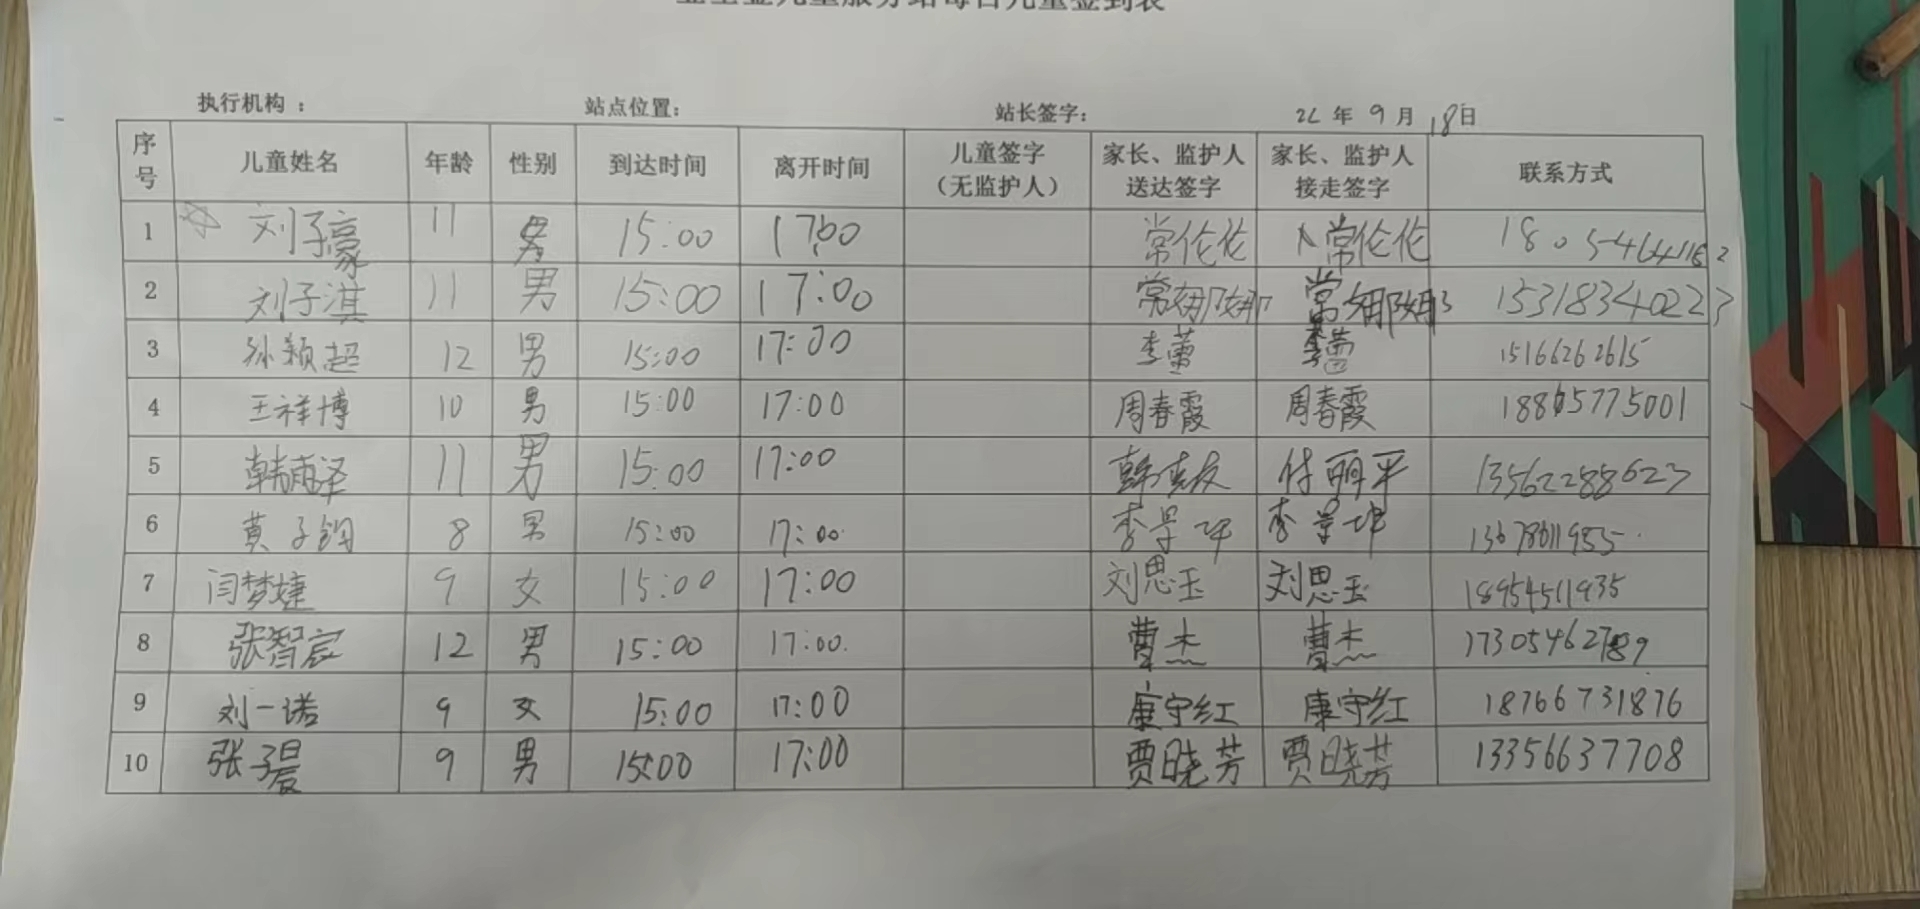 儿童服务站每日儿童签到表
执行机构： 站点位置： 站长签字： 年 9 月 18 日
序号 儿童姓名 年龄 性别 到达时间 离开时间 儿童签字（无监护人） 家长、监护人送达签字 家长、监护人接走签字 联系方式
1 刘子豪 11 男 15:00 17:00 常伦伦 常伦伦
2 刘子淇 11 男 15:00 17:00 常娜娜 常娜娜 15318340223
3 孙颖超 12 男 15:00 17:00 李蕾 李蕾 15166262615
4 王祥博 10 男 15:00 17:00 周春霞 周春霞 18865775001
5 韩雨泽 11 男 15:00 17:00 13562288623
6 黄子钧 8 男 15:00 17:00
7 闫梦婕 9 女 15:00 17:00 刘思玉 刘思玉 18954511935
8 张智宸 12 男 15:00 17:00. 曹杰 曹杰 17305462789
9 刘一诺 9 女 15:00 17:00 康守红 康守红 18766731876
10 张子晨 9 男 15:00 17:00 贾晓芳 贾晓芳 13356637708